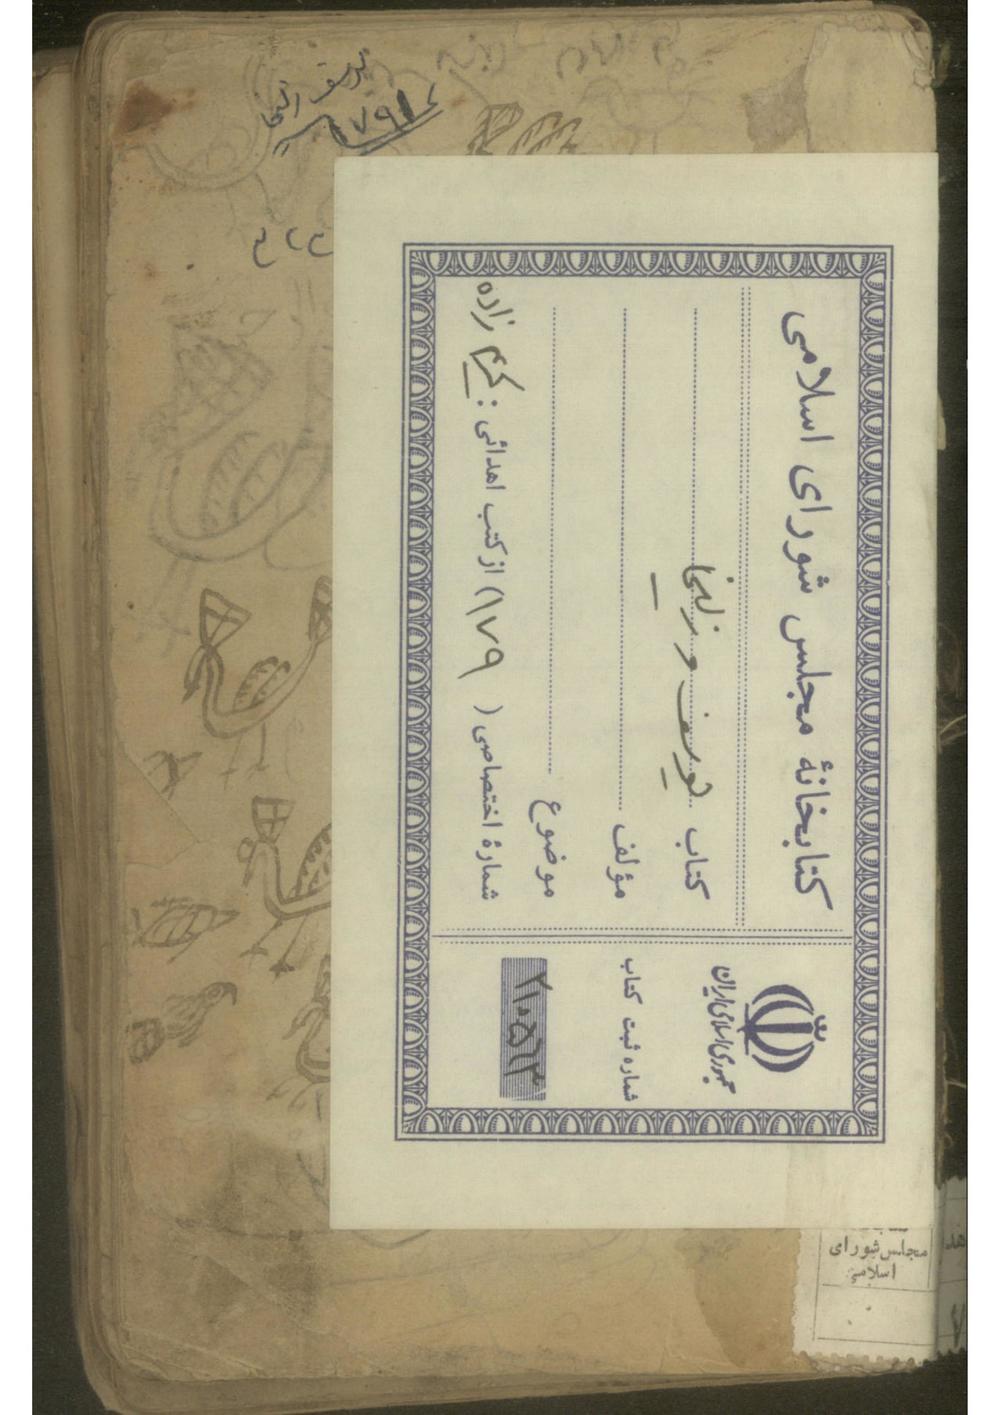 یوسف زلیخا
۱۷۹
کتابخانهٔ مجلس شورای اسلامی
کتاب یوسف و زلیخا
مؤلف
موضوع
شمارهٔ اختصاصی ( ۱۷۹ ) از کتب اهدائی : کریم زاده
جمهوری اسلامی ایران
شماره ثبت کتاب
۲۱۰۵۶۳
مجلس شورای
اسلامی